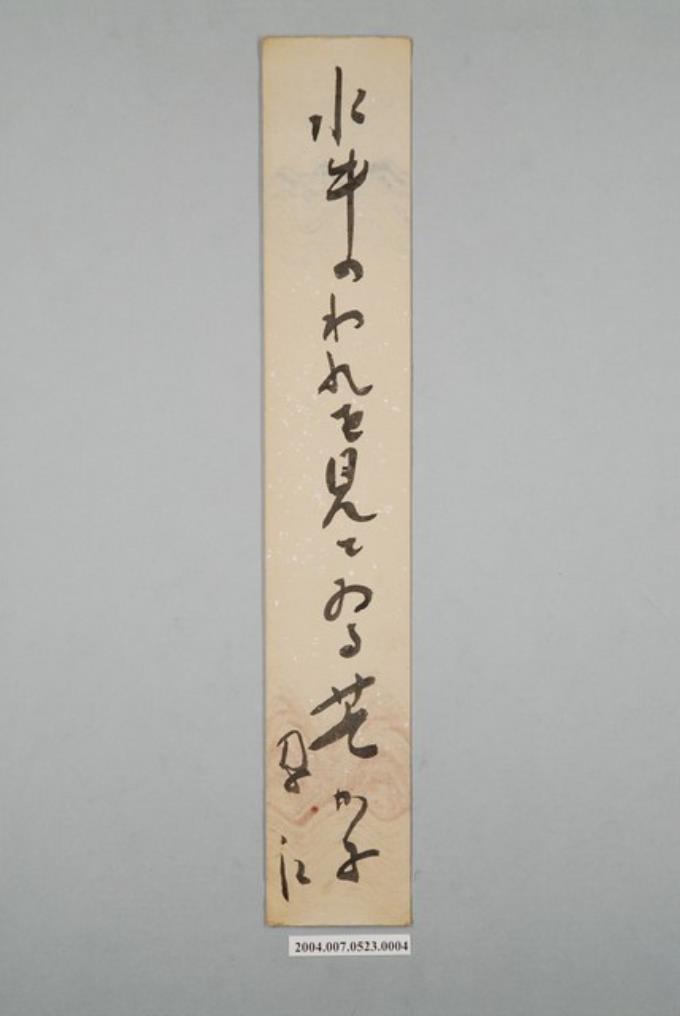 水牛のわれを見てゐる芒かな
孕江
2004.007.0523.0004